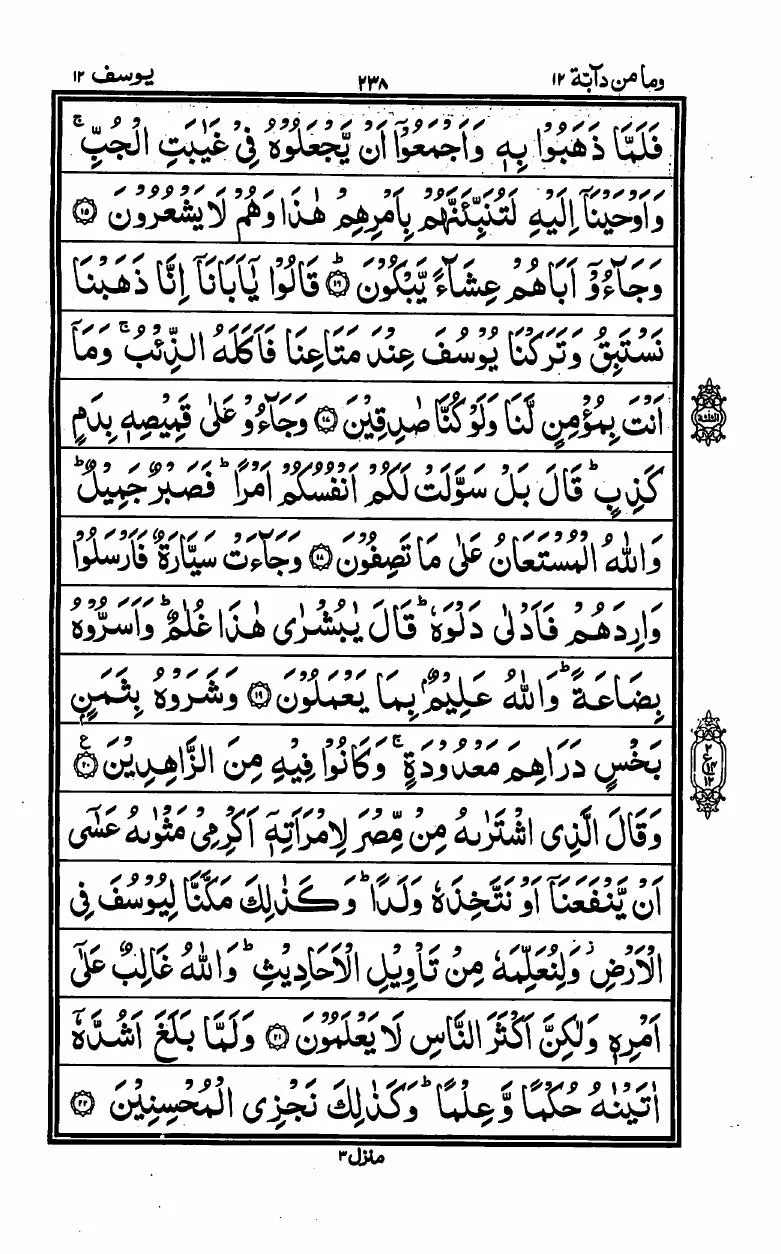 وما من دآبة ۱۲ ۲۳۸ يوسف ۱۲
فَلَمَّا ذَهَبُوْا بِهٖ وَاَجْمَعُوْٓا اَنْ يَّجْعَلُوْهُ فِيْ غَيٰبَتِ الْجُبِّ ۚ
وَاَوْحَيْنَآ اِلَيْهِ لَتُنَبِّئَنَّهُمْ بِاَمْرِهِمْ هٰذَا وَهُمْ لَا يَشْعُرُوْنَ ۝۱۵
وَجَآءُوْٓ اَبَاهُمْ عِشَآءً يَّبْكُوْنَ ۝۱۶ؕ قَالُوْا يٰٓاَبَانَآ اِنَّا ذَهَبْنَا
نَسْتَبِقُ وَتَرَكْنَا يُوْسُفَ عِنْدَ مَتَاعِنَا فَاَكَلَهُ الذِّئْبُ ۚ وَمَآ
اَنْتَ بِمُؤْمِنٍ لَّنَا وَلَوْ كُنَّا صٰدِقِيْنَ ۝۱۷ وَجَآءُوْ عَلٰى قَمِيْصِهٖ بِدَمٍ
كَذِبٍ ؕ قَالَ بَلْ سَوَّلَتْ لَكُمْ اَنْفُسُكُمْ اَمْرًا ؕ فَصَبْرٌ جَمِيْلٌ ؕ
وَاللّٰهُ الْمُسْتَعَانُ عَلٰى مَا تَصِفُوْنَ ۝۱۸ وَجَآءَتْ سَيَّارَةٌ فَاَرْسَلُوْا
وَارِدَهُمْ فَاَدْلٰى دَلْوَهٗ ؕ قَالَ يٰبُشْرٰى هٰذَا غُلٰمٌ ؕ وَاَسَرُّوْهُ
بِضَاعَةً ؕ وَاللّٰهُ عَلِيْمٌۢ بِمَا يَعْمَلُوْنَ ۝۱۹ وَشَرَوْهُ بِثَمَنٍۢ
بَخْسٍ دَرَاهِمَ مَعْدُوْدَةٍ ۚ وَكَانُوْا فِيْهِ مِنَ الزَّاهِدِيْنَ ۝۲۰ع
وَقَالَ الَّذِى اشْتَرٰىهُ مِنْ مِّصْرَ لِامْرَاَتِهٖٓ اَكْرِمِيْ مَثْوٰىهُ عَسٰٓى
اَنْ يَّنْفَعَنَآ اَوْ نَتَّخِذَهٗ وَلَدًا ؕ وَكَذٰلِكَ مَكَّنَّا لِيُوْسُفَ فِى
الْاَرْضِ ز وَلِنُعَلِّمَهٗ مِنْ تَاْوِيْلِ الْاَحَادِيْثِ ؕ وَاللّٰهُ غَالِبٌ عَلٰٓى
اَمْرِهٖ وَلٰكِنَّ اَكْثَرَ النَّاسِ لَا يَعْلَمُوْنَ ۝۲۱ وَلَمَّا بَلَغَ اَشُدَّهٗٓ
اٰتَيْنٰهُ حُكْمًا وَّعِلْمًا ؕ وَكَذٰلِكَ نَجْزِى الْمُحْسِنِيْنَ ۝۲۲
منزل ۳